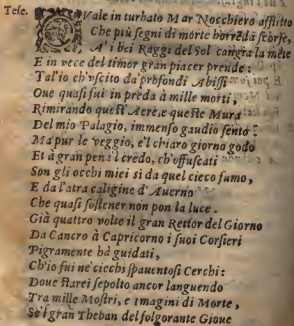 Tese. QVale in turbato Mar Nocchiero afflitto
Che più segni di morte horrēdi scorse,
A' i bei Raggi del sol cangia la mēte
E in vece del timor gran piacer prende:
Tal'io ch'vscito da profondi Abissi
Oue quasi fui in preda à mille morti,
Rimirando quest'Aere, e queste Mura
Del mio Palagio, immenso gaudio sento:
Ma pur le veggio, e'l chiaro giorno godo
Et à gran pena il credo, ch'offuscati
Son gli occhi miei sì da quel cieco fumo,
E da l'atra caligine d'Auerno
Che quasi sostener non pon la luce.
Già quattro volte il gran Rettor del Giorno
Da Cancro à Capricorno i suoi Corsieri
Pigramente hà guidati,
Ch'io fui ne' ciechi spauentosi Cerchi:
Doue starei sepolto ancor languendo
Tra mille Mostri, e imagini di Morte,
Se'l gran Theban del folgorante Gioue